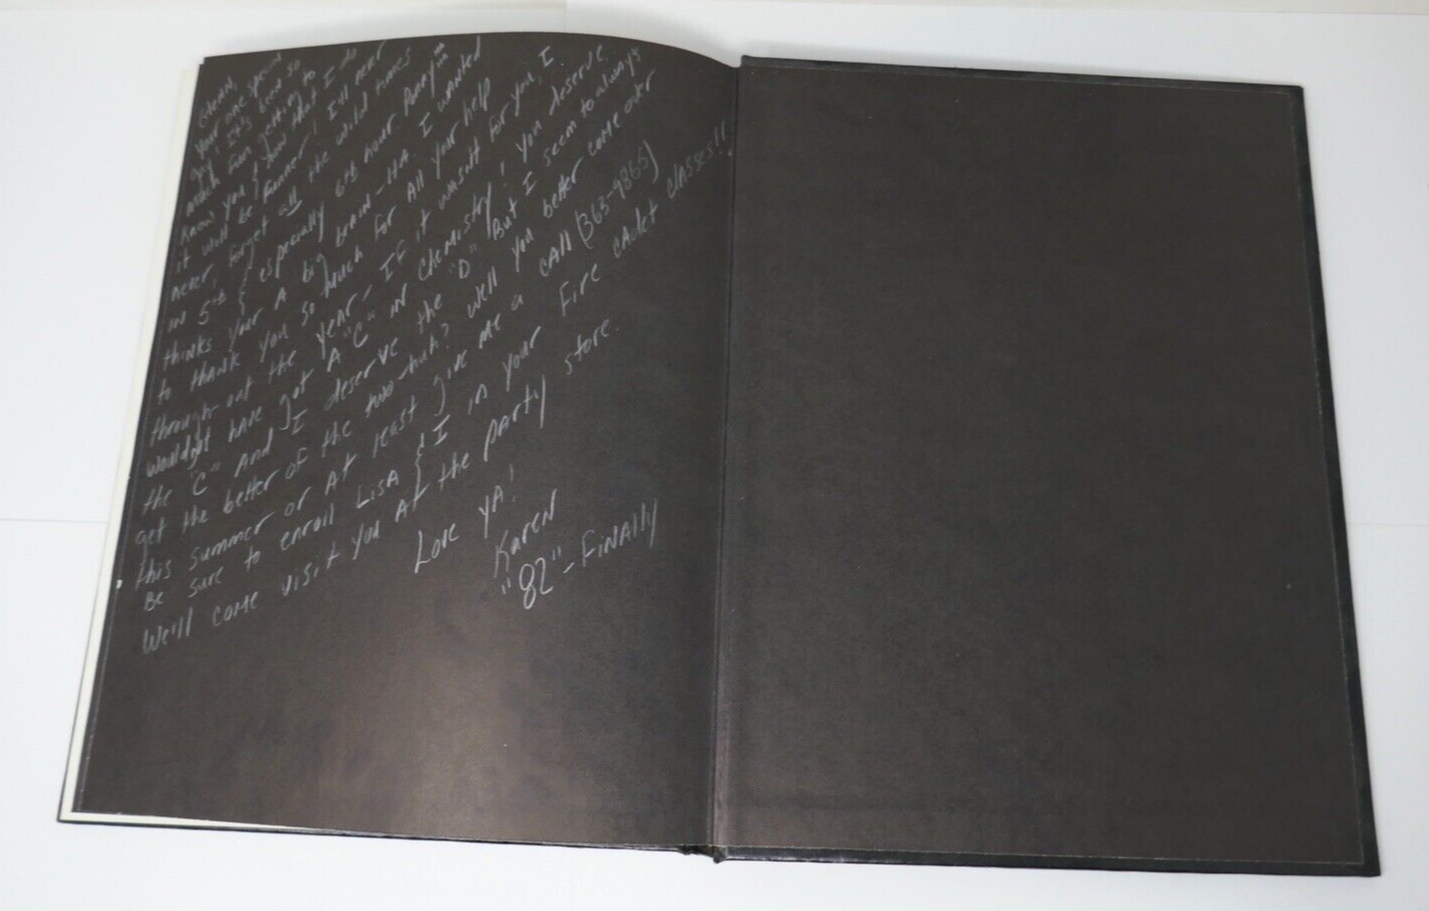 your one special
guy! It's been so
much fun getting to
know you & now that I do
it will be funner! I'll never
never, forget all the wild times
in 5th & especially 6th hour
thinks your A big brain-HA I wanted
to thank you so much for All your help
through-out the year - If it wasn't for you, I
wouldn't have got A "C" in Chemistry! You deserve
the "C" And I deserve the "D" But I seem to always
get the better of the two-huh? Well you better come over
this summer or At least give me a call (363-9865)
Be sure to enroll LisA & I in your Fire cAdet classes!!
We'll come visit you At the party store.
Love yA!
Karen
"82" - Finally